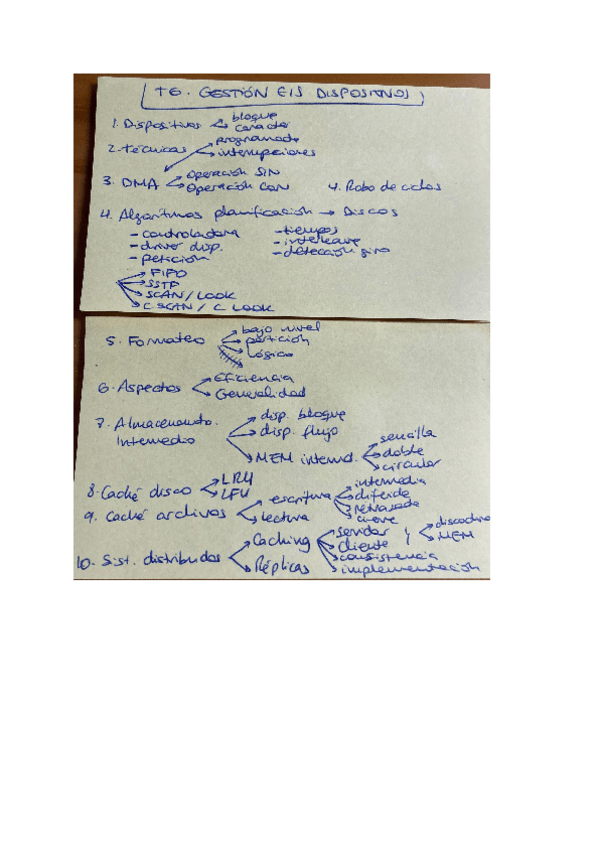 T6. GESTIÓN E/S DISPOSITIVOS
1. Dispositivos bloque
caracter
2. Técnicas programada
interrupciones
3. DMA Operación SIN
Operación CON 4. Robo de ciclos
4. Algoritmos planificación → Discos
- controladora - tiempos
- driver disp. - interleave
- petición - detección giro
FIFO
SSTF
SCAN / LOOK
C SCAN / C LOOK
5. Formateo bajo nivel
partición
lógico
6. Aspectos Eficiencia
Generalidad
7. Almacenamto. Intermedio disp. bloque
disp. flujo
MEM intermd. sencilla
doble
circular
8. Caché disco LRU
LFU
9. Caché archivos escritura intermedia
diferida
retrasada
cierre
lectura
10. Sist. distribuidos Caching servidor
cliente
consistencia
implementación
MEM
Réplicas